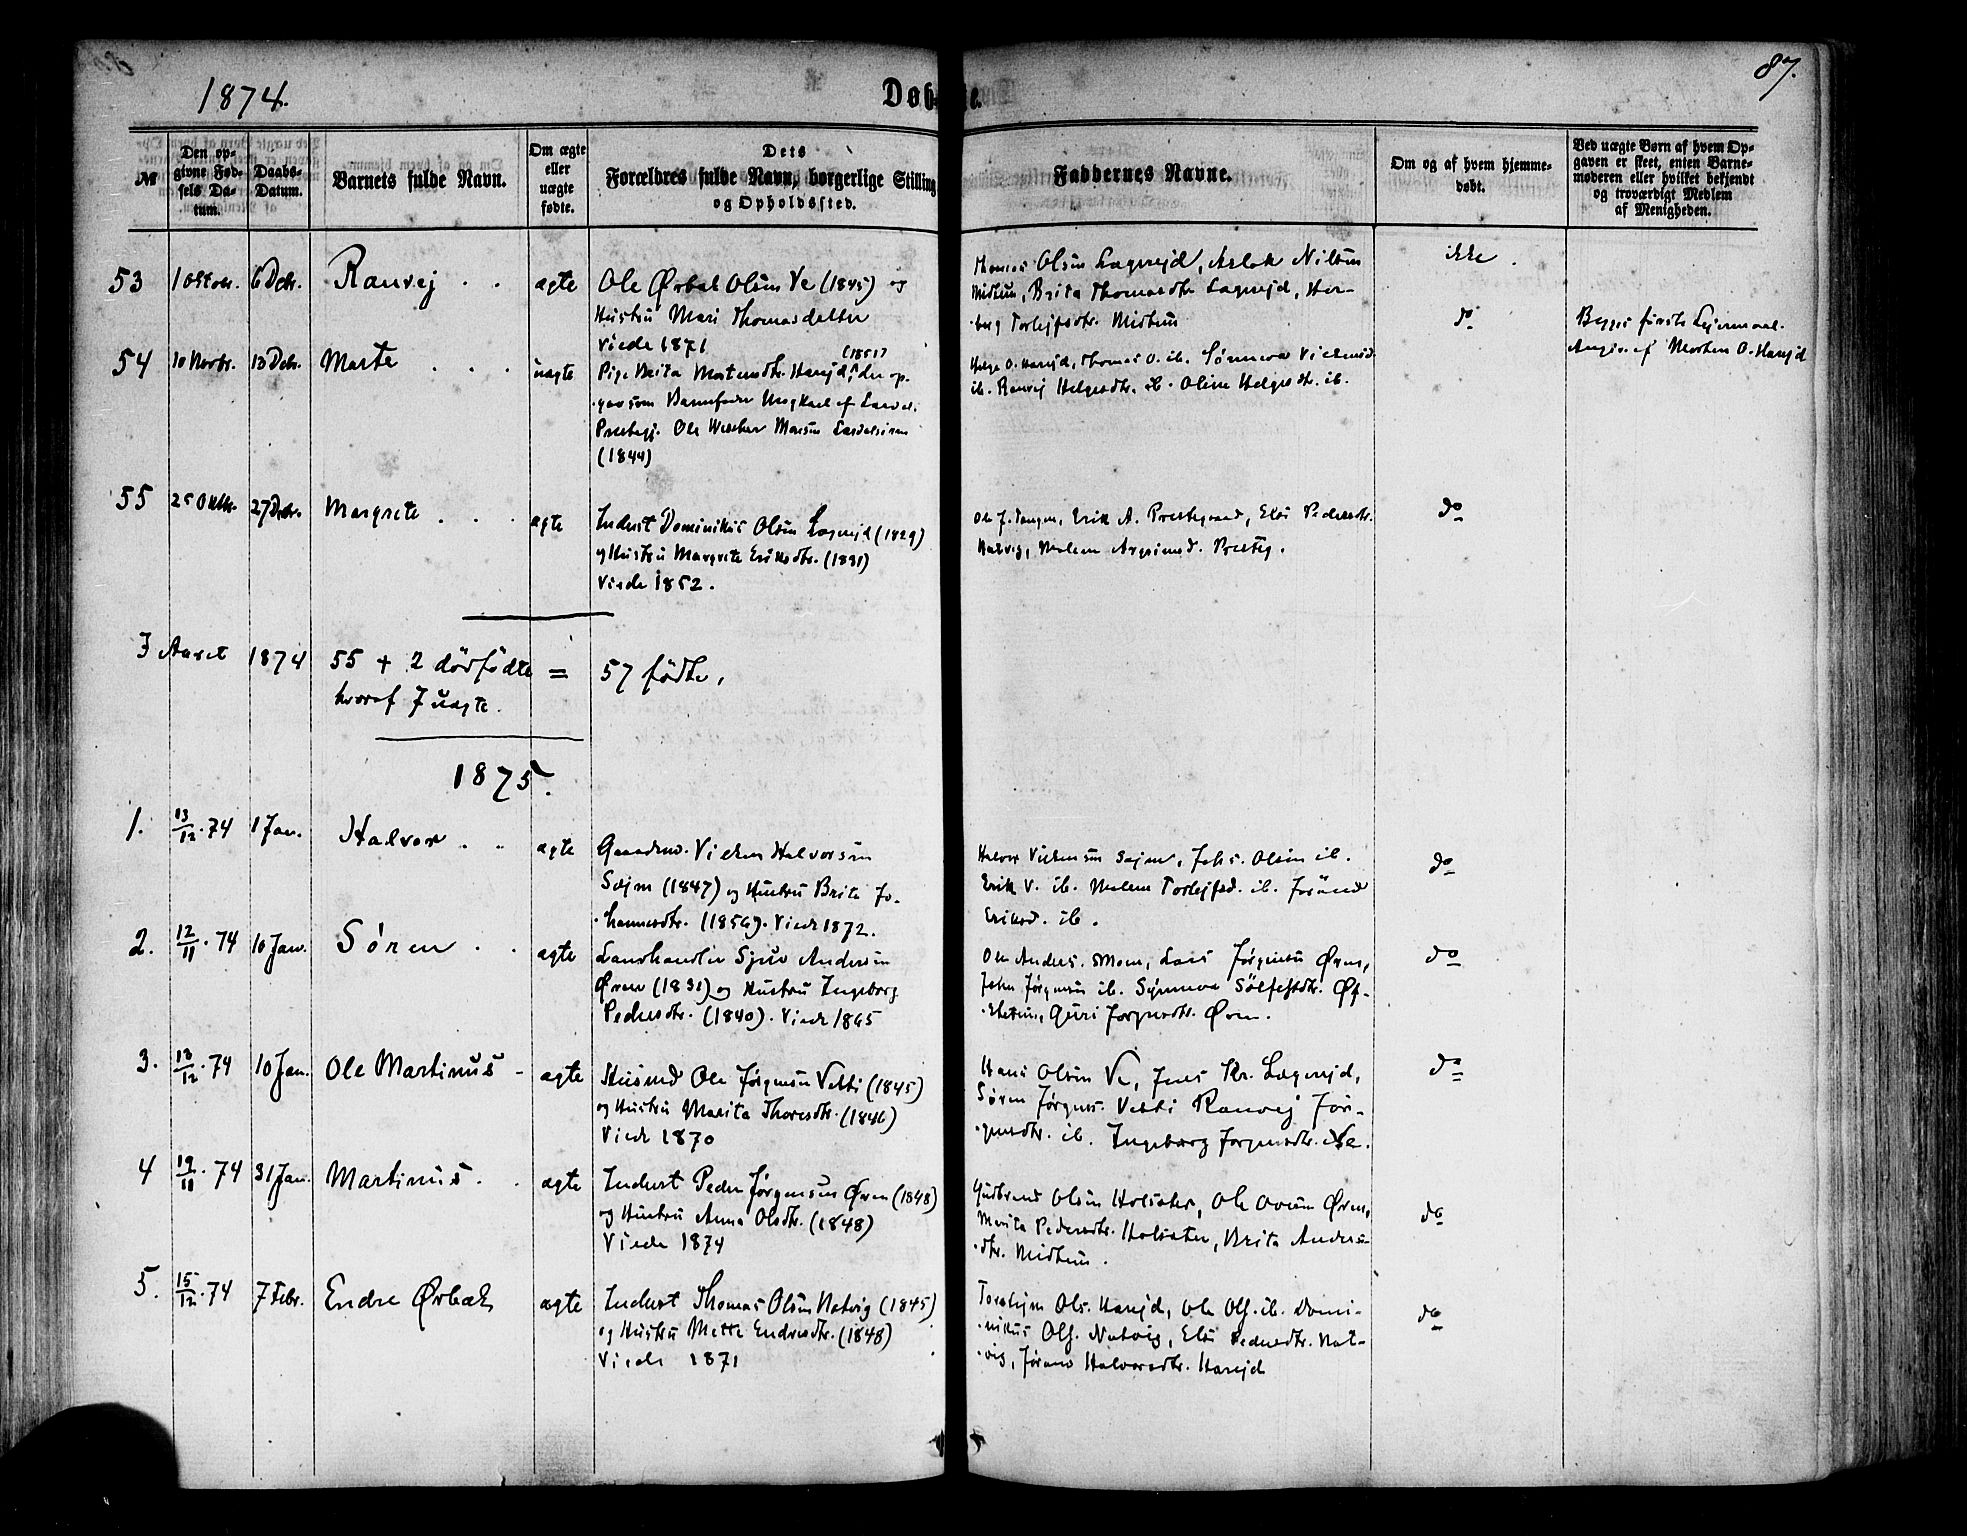 1874.
Døbte.
87.
№
Den opgivne Fødsels Datum.
Daabs-Datum.
Barnets fulde Navn.
Om ægte eller uægte fødte.
Dets Forældres fulde Navn, borgerlige Stilling og Opholdssted.
Faddernes Navne.
Om og af hvem hjemmedøbt.
Ved uægte Børn af hvem Opgaven er skeet, enten Barnemoderen eller hvilket bekjendt og troværdigt Medlem af Menigheden.
53 1 Oktbr. 6 Dcbr. Ranvej ægte
Ole Ørbek Olsen Ve (1845) og
Hustru Mari Thomasdatter
Viede 1871
Thomas Olsen Lægrejd, Aslak Nielsen
Midtun, Brita Thomasdtr. Lægrejd, Her-
-berg Torlejfsdtr. Midtun
ikke.
54 10 Novbr. 13 Dcbr. Marte uægte
Pige Brita Mortensdtr. Harejd, (1851) der op-
-gav som Barnefader Ungkarl af Lærdal
Præstegj. Ole Mørsen Lærdalsøren
(1844)
Helge O. Harejd, Thomas O. ib. Sønneva
ib. Ranvej Helgesdtr. ib. Oline Helgesdtr. ib.
do
Begges første Lejermaal.
Angiv. af Morten O. Harejd
55 25 Oktbr. 27 Dcbr. Margrete ægte
Inderst Dominikus Olsen Lægrejd (1829)
og Hustru Margrete Eriksdtr. (1831)
Viede 1852.
Ole J. Tangen, Erik A. Prestegaard, Eli Pedersdtr.
Natvig, Malene Præsteg.
do
I Aaret 1874 55 + 2 dødfødte = 57 fødte,
hvoraf 7 uægte.
1875.
1. 13/12.74 1 Jan. Halvor ægte
Gaardmd. Halvorsen
Sejm (1847) og Hustru Brita Jo-
-hannesdtr. (1856). Viede 1872.
Halvor Sejm, Johs. Olsen ib.
Erik V. ib. Malene Torlejfsd. ib. Jorand
Eriksd. ib.
do
2. 12/11.74 10 Jan. Søren ægte
Landhandler Sjur Andersen
Øren (1831) og Hustru Ingeborg
Pedersdtr. (1840). Viede 1865
Ole Anders. Moen, Lars Jørgensen Øren,
John Jørgensen ib. Synneva Sølfestdtr. Øf-
-stetun, Guri Jørgensdtr. Øren.
do
3. 13/12.74 10 Jan. Ole Martinus ægte
Husmd Ole Jørgensen Vetti (1845)
og Hustru Marita Thoresdtr. (1846)
Viede 1870
Hans Olsen Ve, Jens Kr. Lægrejd,
Søren Jørgens. Vetti Ranvej Jør-
-gensdtr. ib. Ingeborg Jørgensdtr. Ve.
do
4 19/11.74 31 Jan. Martinus ægte
Inderst Peder Jørgensen Øren (1848)
og Hustru Anna Olsdtr. (1848)
Viede 1874
Gudbrand Olsen Holsæter, Ole Øren,
Marita Pedersdtr. Holsæter, Brita Anders-
-dtr. Midtun.
do
5. 15/12.74 7 Febr. Endre Ørbæk ægte
Inderst Thomas Olsen Natvig (1845)
og Hustru Mette Endresdtr. (1848)
Viede 1871
Torstejn Ols. Harejd, Ole Ols. ib. Domi-
-nikus Ols. Natvig, Eli Pedersdtr. Nat-
-vig, Jorann Halvorsdtr. Harejd
do